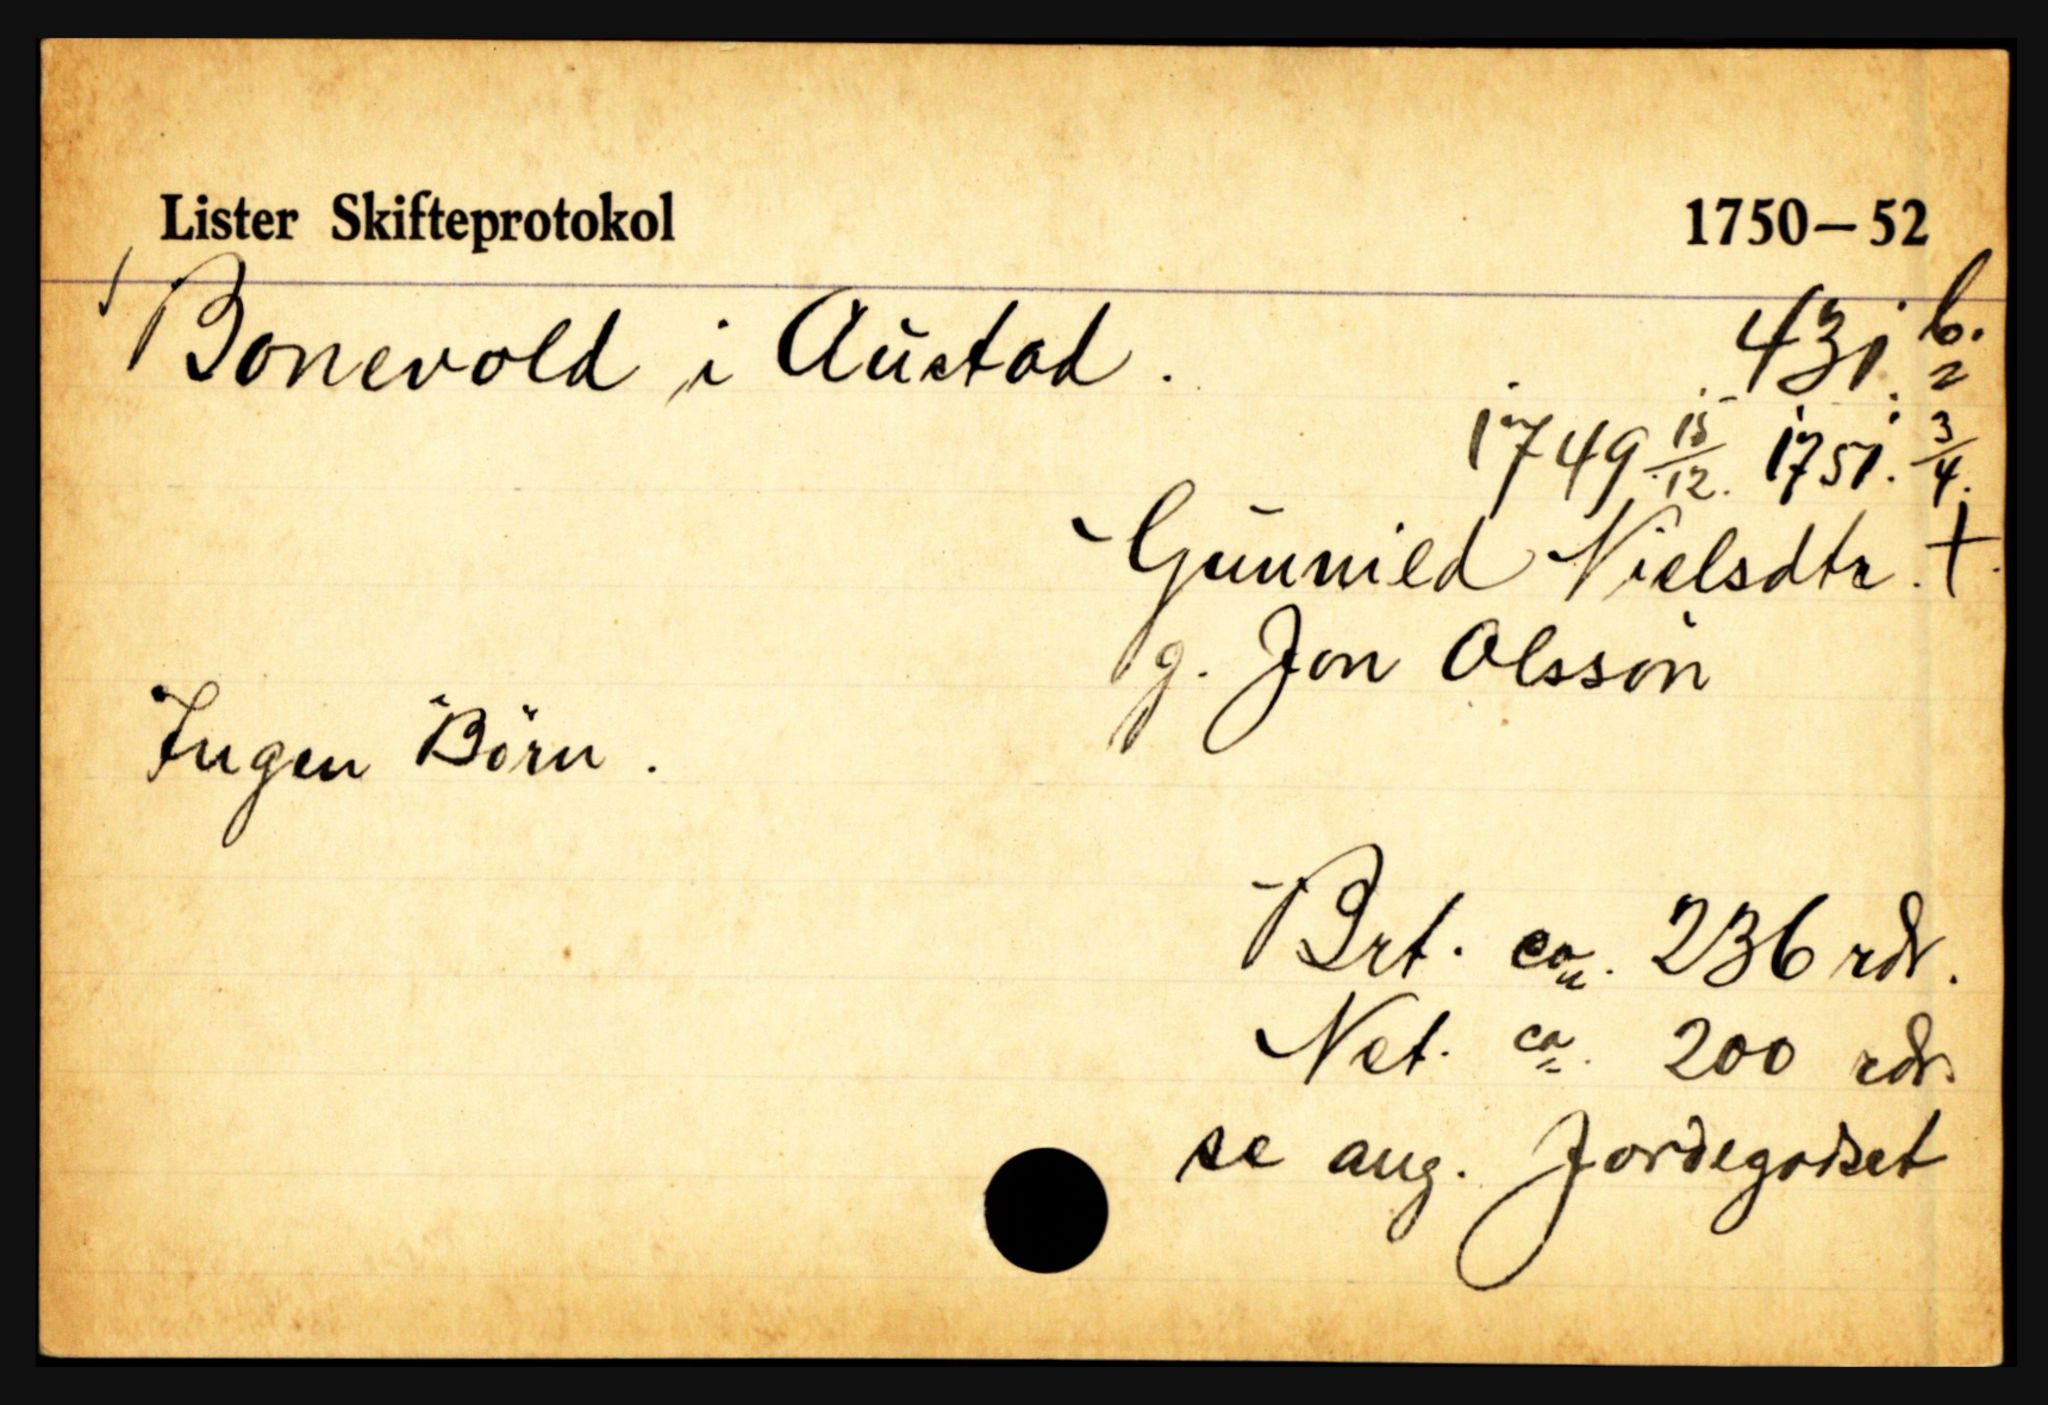 Lister Skifteprotokol 1750—52
Bonevold i Austad. 431 b.
1749 15/12. 1751. 3/4.
Gunnild Nielsdtr. †.
g. Jon Olsson
Ingen Börn.
Brt. ca. 236 rdr.
Net. ca. 200 rdr.
se ang. Jordegodset